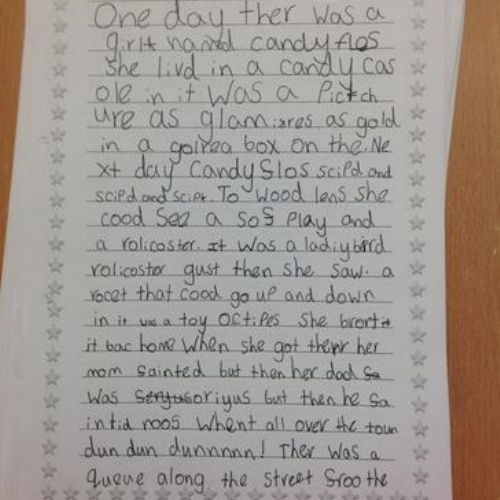 One day ther was a
girlt named candyflos
she livd in a candy cas
ole in it was a Pictch
ure as glamiares as gold
in a golvea box on the Ne
xt day Candyflos scipd and
scipd and scipt. To Wood lens she
cood See a sof Play and
a rolicoster. It was a ladiybird
rolicostor gust then she saw. a
rocet that cood go up and down
in it was a toy Octipes She brort it
it bac home When she got their her
mom fainted but then her dad Sa
Was Seryusoriyus but then he sa
intid noos Whent all over the toun
dun dun dunnnnn! Ther was a
queue along the street froo the